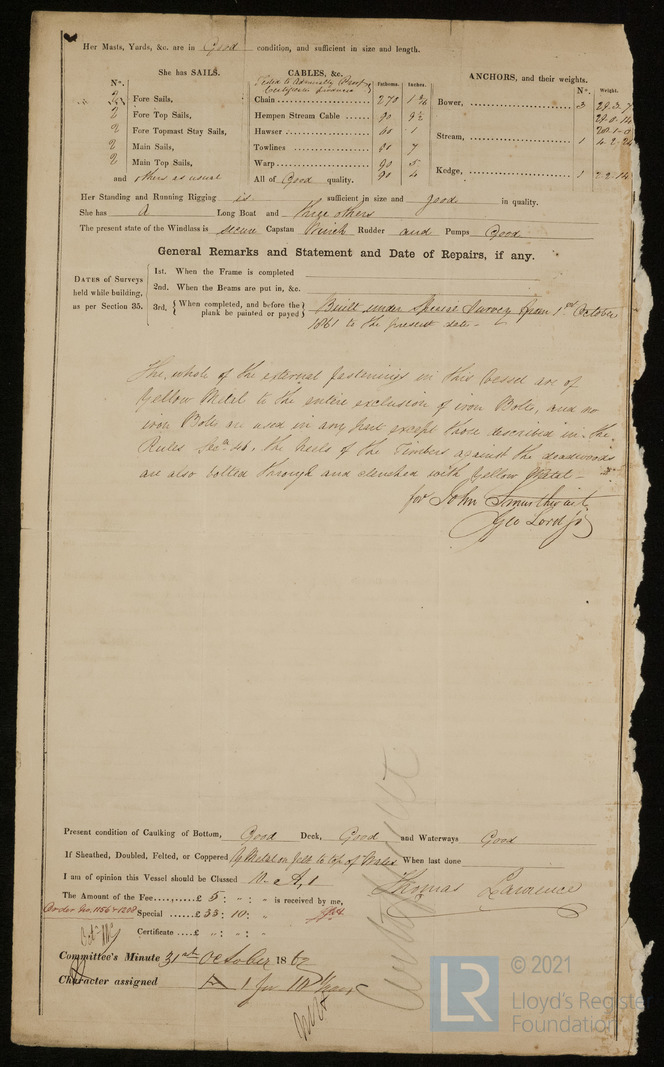 Her Masts, Yards, &c. are in Good condition, and sufficient in size and length.
She has SAILS.
No.
2 Fore Sails,
2 Fore Top Sails,
2 Fore Topmast Stay Sails,
2 Main Sails,
2 Main Top Sails,
and others as usual
CABLES, &c. Fathoms. Inches.
Tested to Admiralty Proof
Certificate produced
Chain 270
Hempen Stream Cable 90 9½
Hawser 1
Towlines 7
Warp 90 5
All of Good quality. 90 4
ANCHORS, and their weights.
No. Weight.
Bower, 3 29.3.7
29.0.14
28.1.0
Stream, 1 4.2.24
Kedge, 1 2.2.14
Her Standing and Running Rigging is sufficient in size and good in quality.
She has A Long Boat and three others
The present state of the Windlass is secure Capstan Winch Rudder and Pumps Good
General Remarks and Statement and Date of Repairs, if any.
DATES of Surveys held while building, as per Section 35.
1st. When the Frame is completed
2nd. When the Beams are put in, &c.
3rd. { When completed, and before the plank be painted or payed } Built under Special Survey from 1st October
1861 to the present date -
The whole of the external fastenings in this Vessel are of
Yellow Metal to the entire exclusion of iron Bolts, and no
iron Bolts are used in any part except those described in the
Rules Secn 40. the heels of the Timbers against the deadwoods
are also bolted through and clenched with Yellow Metal -
for John
Geo Lord Jr
Present condition of Caulking of Bottom, Good Deck, Good and Waterways Good
If Sheathed, Doubled, Felted, or Coppered Y Metal on Felt to top of Wales When last done
I am of opinion this Vessel should be Classed 10 A,1
Thomas Lawrence
The Amount of the Fee ...... £ 5 : " : " is received by me,
Order Nos. 1156 & 1208 Special ...... £ 33 : 10 : "
Certificate .... £ " : " : "
Committee's Minute 31st October 1862
Character assigned A 1 for 10 Years
LR
© 2021
Lloyd's Register
Foundation